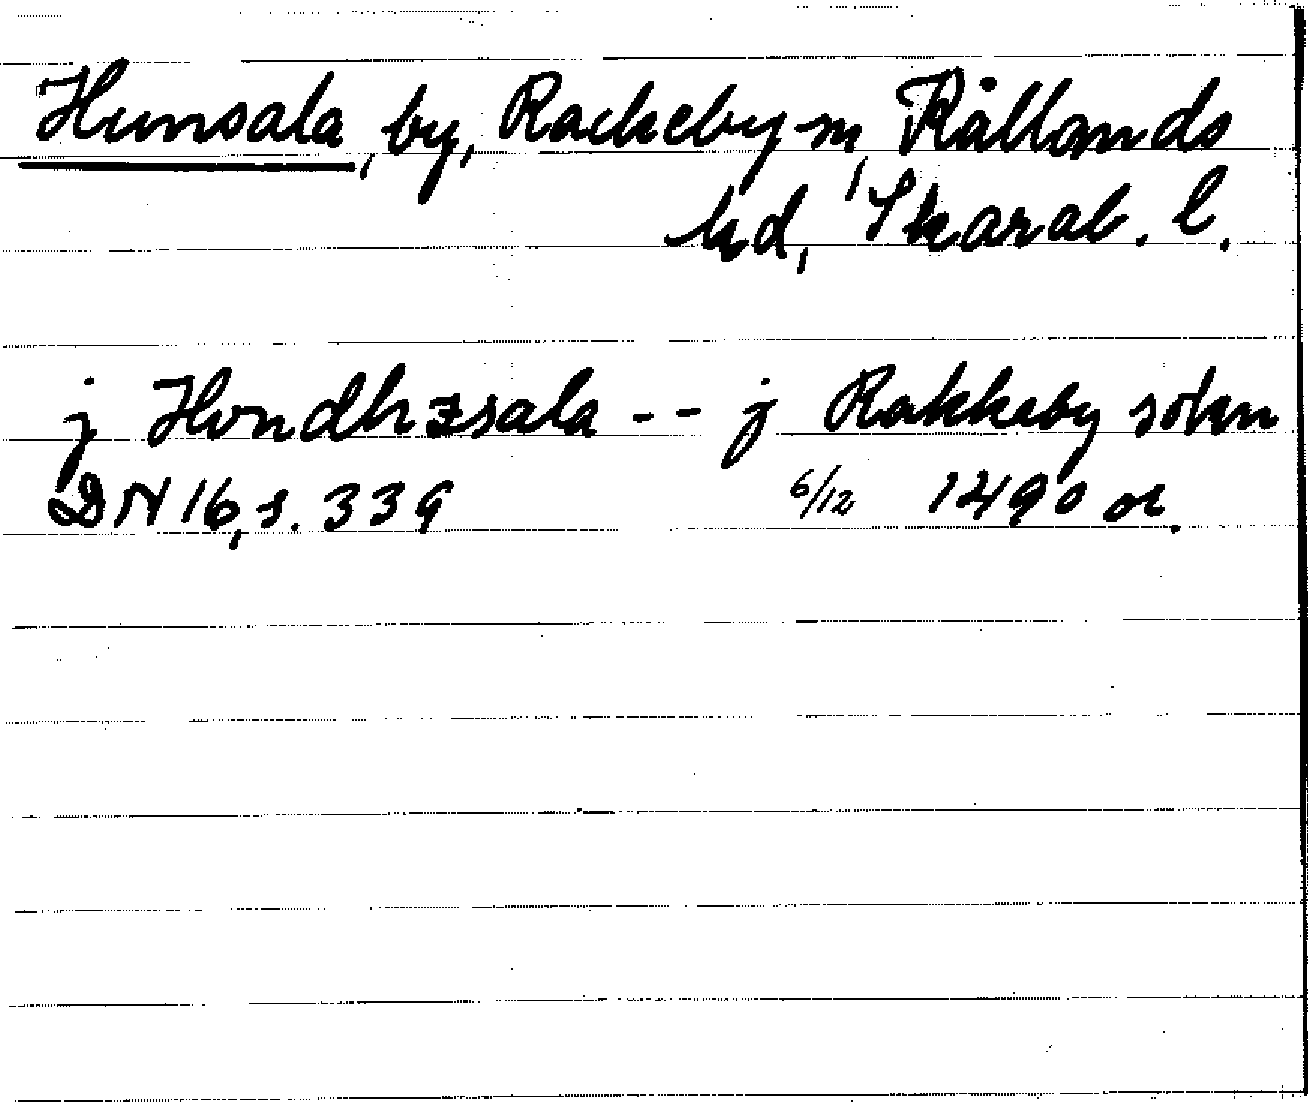 Hunsala, by, Rackeby sn, Kållands
hd, Skarab. l.
j Hvndhzsala -- j Rakkeby sokn
DN 16, s. 339 6/12 1490 or.